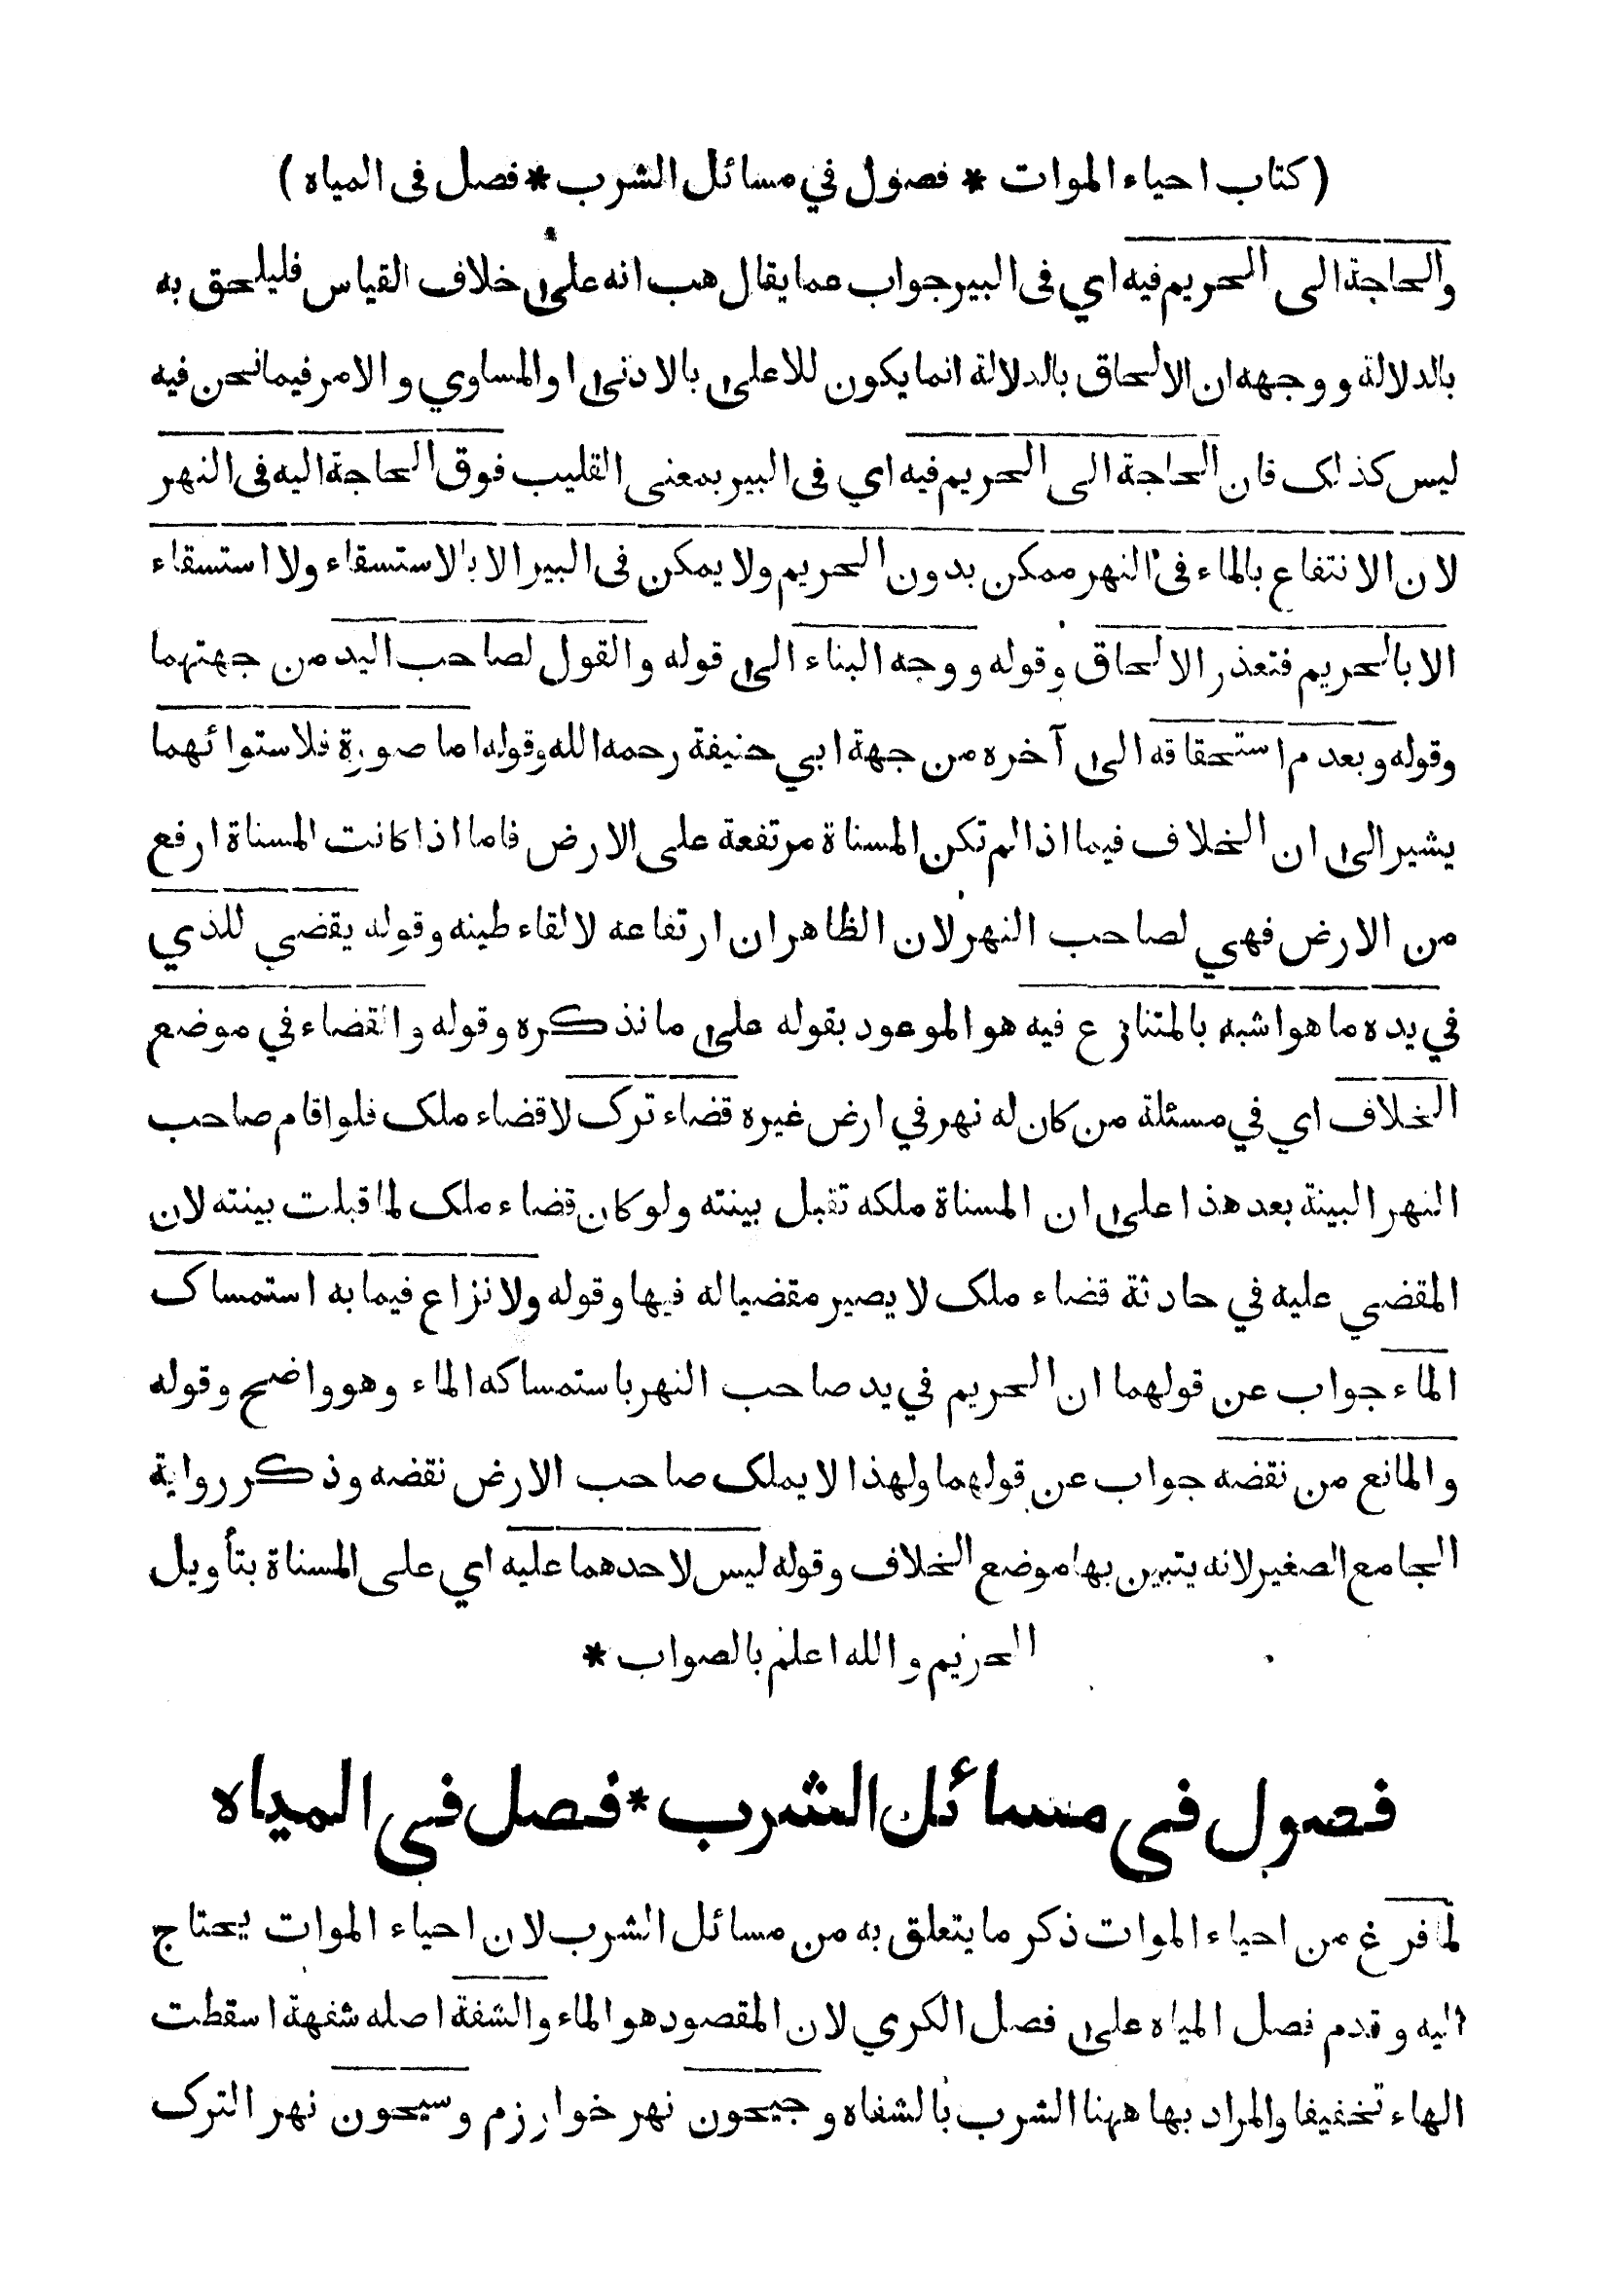 ( كتاب احياء الموات * فصول في مسائل الشرب * فصل في المياه )
والحاجة الى الحريم فيه اي في البير جواب عما يقال هب انه على خلاف القياس فليلحق به
بالدلالة ووجهه ان الالحاق بالدلالة انما يكون للاعلى بالادنى او المساوي والامر فيما نحن فيه
ليس كذلك فان الحاجة الى الحريم فيه اي في البير بمعنى القليب فوق الحاجة اليه في النهر
لان الانتفاع بالماء في النهر ممكن بدون الحريم ولا يمكن في البير الا بالاستسقاء ولا استسقاء
الا بالحريم فتعذر الالحاق وقوله ووجه البناء الى قوله والقول لصاحب اليد من جهتهما
وقوله وبعدم استحقاقه الى آخره من جهة ابي حنيفة رحمه الله وقوله اما صورة فلاستوائهما
يشير الى ان الخلاف فيما اذا لم تكن المسناة مرتفعة على الارض فاما اذا كانت المسناة ارفع
من الارض فهي لصاحب النهر لان الظاهر ان ارتفاعه لالقاء طينه وقوله يقضي للذي
في يده ما هو اشبه بالمتنازع فيه هو الموعود بقوله على ما نذكره وقوله والقضاء في موضع
الخلاف اي في مسئلة من كان له نهر في ارض غيره قضاء ترك لا قضاء ملك فلو اقام صاحب
النهر البينة بعد هذا على ان المسناة ملكه تقبل بينته ولو كان قضاء ملك لما قبلت بينته لان
المقضي عليه في حادثة قضاء ملك لا يصير مقضيا له فيها وقوله ولا نزاع فيما به استمساك
الماء جواب عن قولهما ان الحريم في يد صاحب النهر باستمساكه الماء وهو واضح وقوله
والمانع من نقضه جواب عن قولهما ولهذا لا يملك صاحب الارض نقضه وذكر رواية
الجامع الصغير لانه يتبين بها موضع الخلاف وقوله ليس لاحدهما عليه اي على المسناة بتأويل
الحريم والله اعلم بالصواب *
فصول في مسائل الشرب * فصل في المياه
لما فرغ من احياء الموات ذكر ما يتعلق به من مسائل الشرب لان احياء الموات يحتاج
اليه وقدم فصل المياه على فصل الكري لان المقصود هو الماء والشفة اصله شفهة اسقطت
الهاء تخفيفا والمراد بها ههنا الشرب بالشفاه وجيحون نهر خوارزم وسيحون نهر الترك